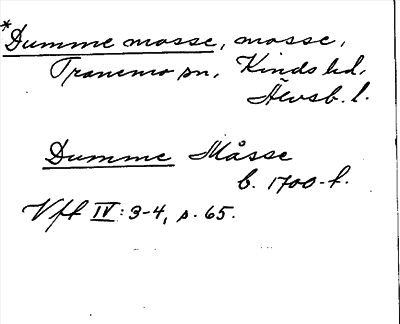 *Dumme mosse, mosse,
Tranemo sn, Kinds hd,
Älvsb. l.
Dumme Måsse
b. 1700-t.
Vft IV: 3-4, s. 65.